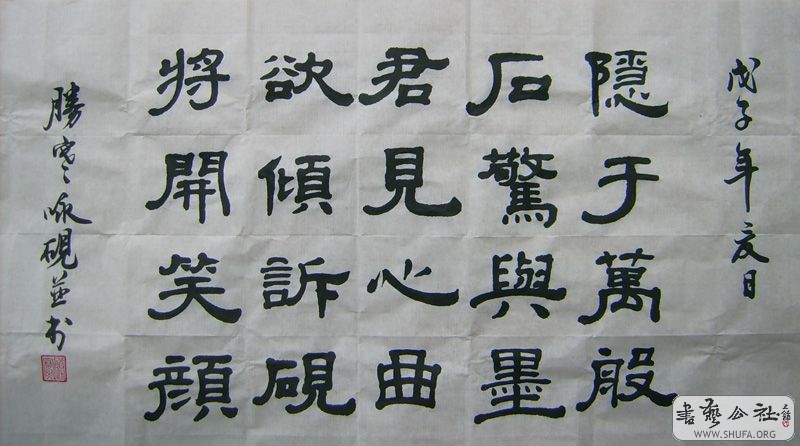 戊子年夏日
隱于萬般
石驚與墨
君見心曲
欲傾訴硯
將開笑顔
勝寒咏硯並书
書藝公社
WWW.SHUFA.ORG